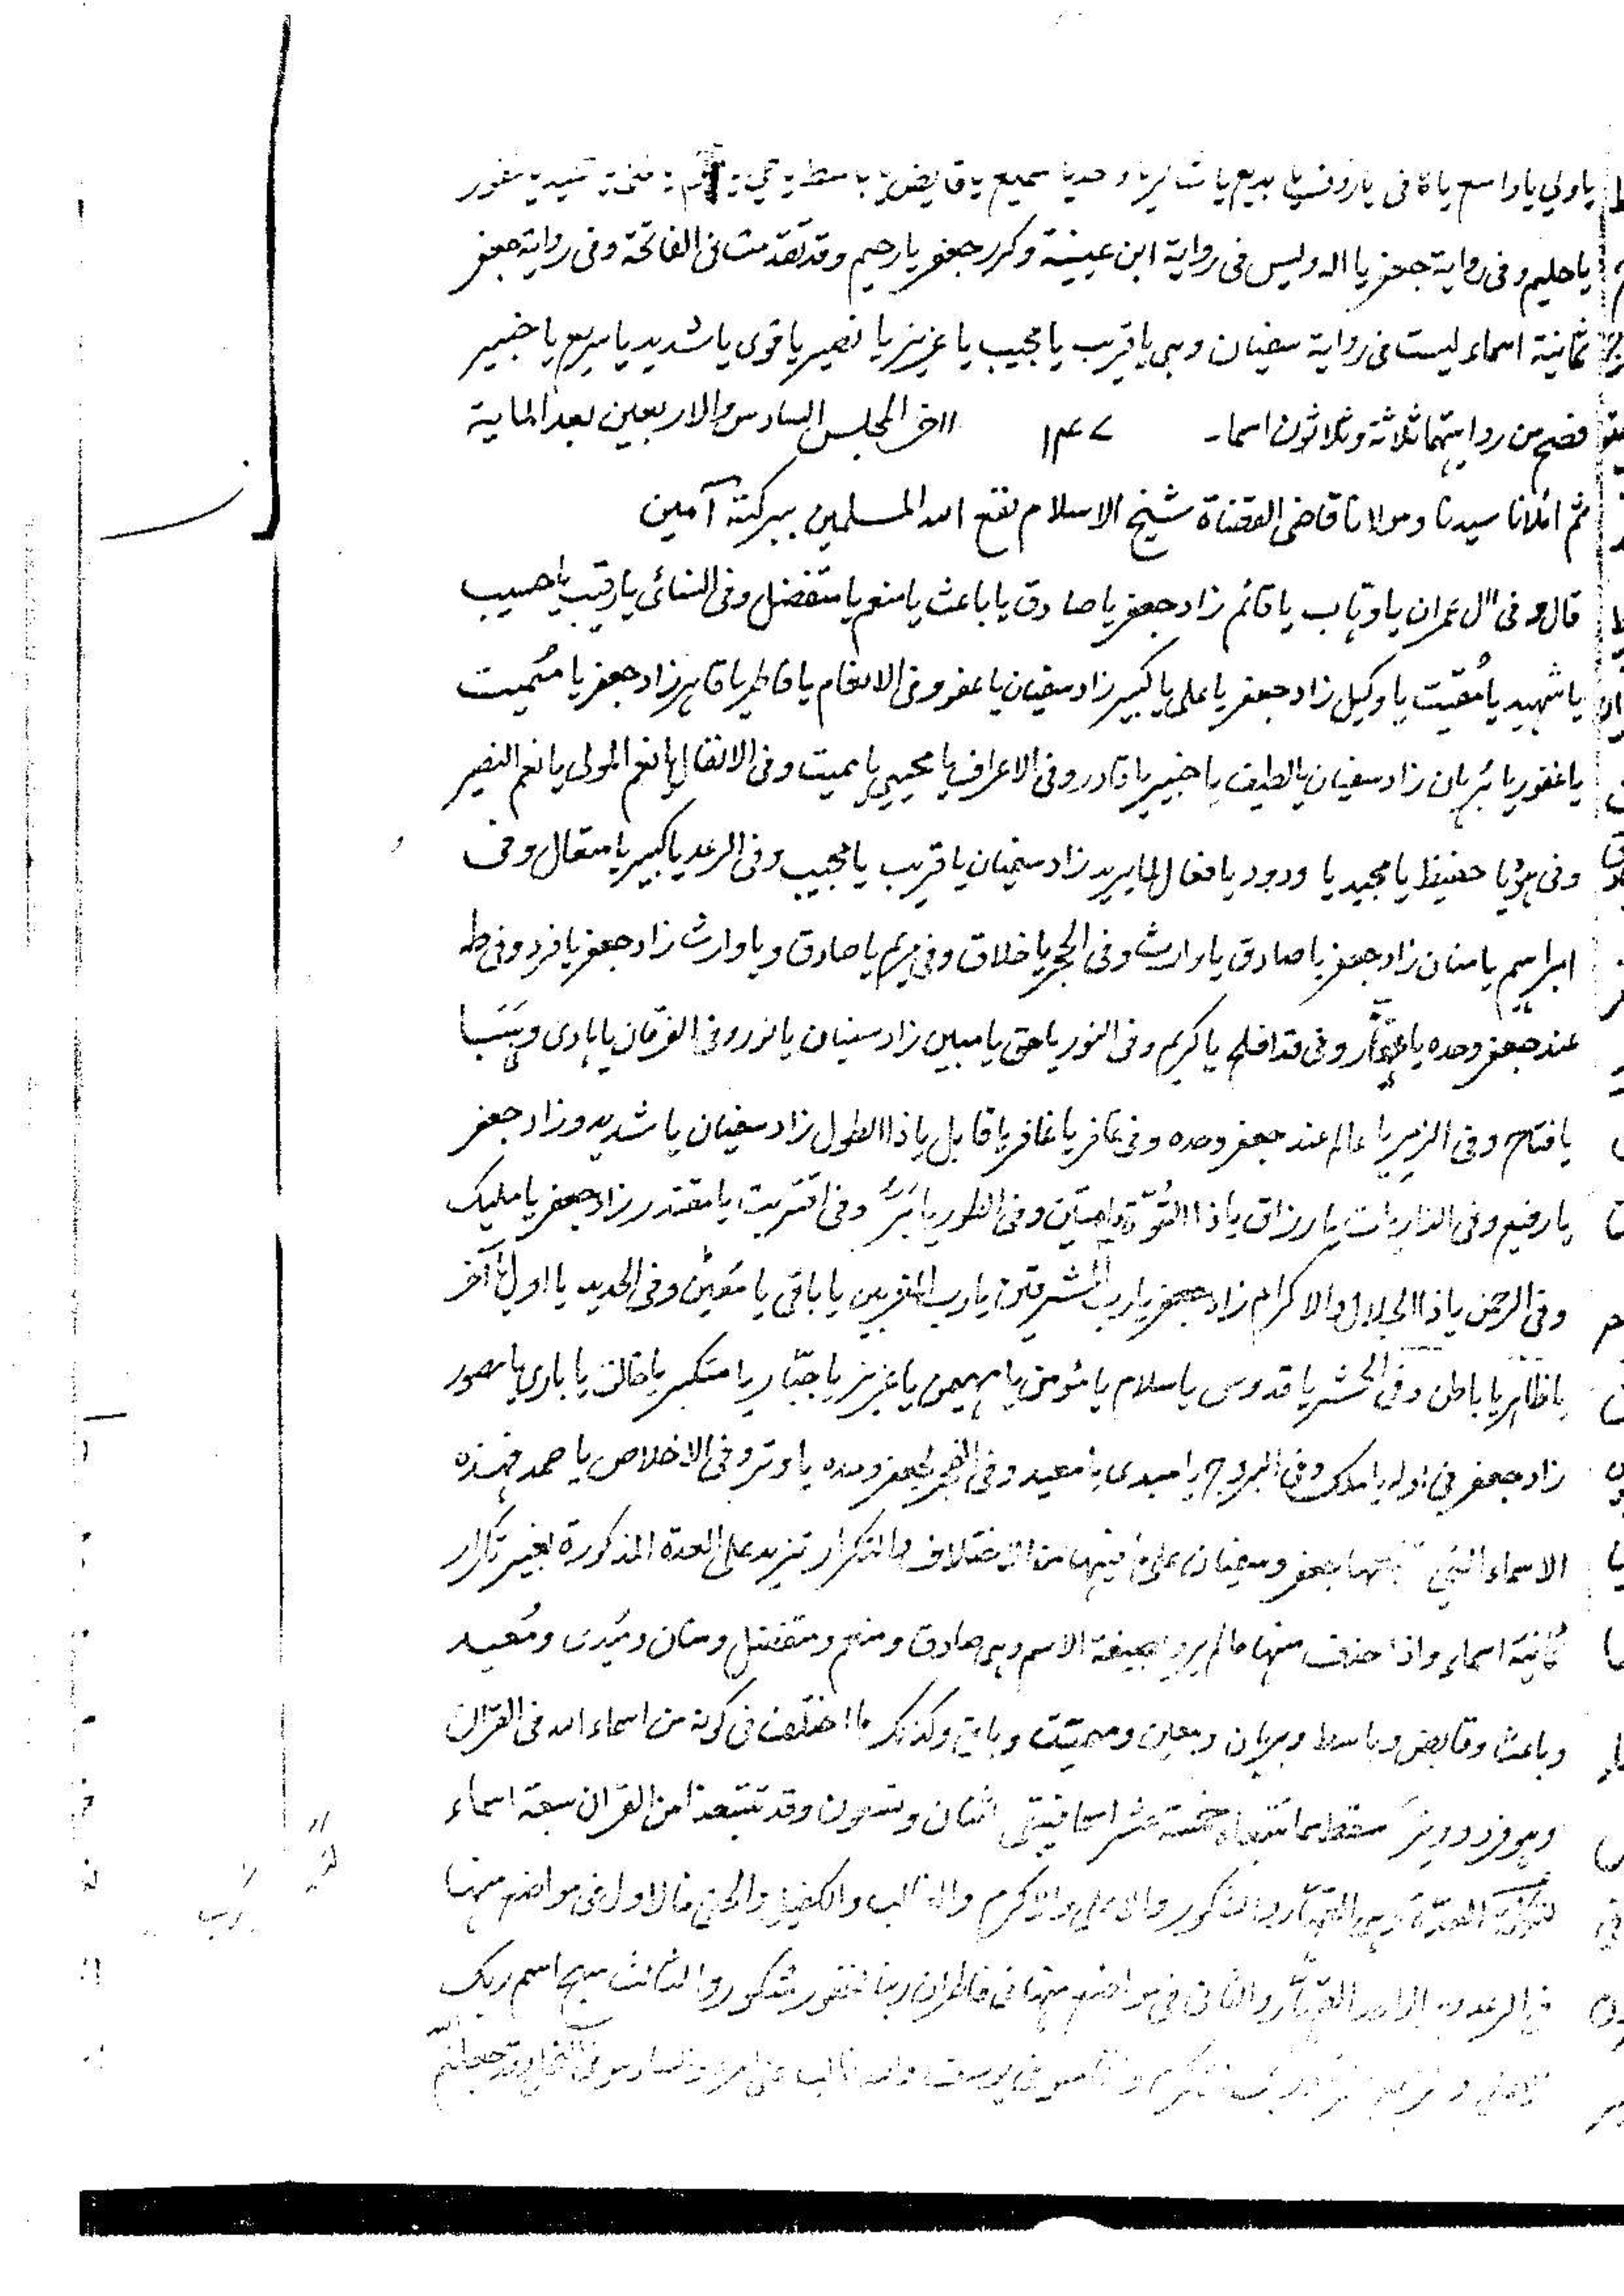 يا ولي يا واسع يا كافى يا رؤف يا بديع يا شاكر يا واحد يا سميع يا قابض يا باسط يا حي يا قيوم يا غنى يا حميد يا غفور
يا حليم وفى رواية جعفر يا اله وليس فى رواية ابن عيينة وكرر جعفر يا رحيم وقد تقدمت فى الفاتحة وفى رواية جعفر
ثمانية اسماء ليست فى رواية سفيان وهى يا قريب يا مجيب يا عزيز يا نصير يا قوى يا شديد يا سريع يا خبير
فصح من روايتهما ثلاثة وثلاثون اسما ۔ ۱۴۷ اآخر المجلس السادس والاربعين بعد الماية
ثم املانا سيدنا ومولانا قاضى القضاة شيخ الاسلام نفع الله المسلمين ببركته آمين
قال وفى اال عمران يا وهاب يا قائم زاد جعفر يا صادق يا باعث يا منعم يا متفضل وفى النسائى يا رقيب يا حسيب
يا شهيد يا مُقيت يا وكيل زاد جعفر يا على يا كبير زاد سفيان يا عفو وفى الانعام يا فاطر يا قاهر زاد جعفر يا مُميت
يا غفور يا بُرهان زاد سفيان يا لطيف يا خبير يا قادر وفى الاعراف يا محيي يا مميت وفى الانفال يا نعم المولى يا نعم النصير
وفى هود يا حفيظ يا مجيد يا ودود يا فعال لما يريد زاد سفيان يا قريب يا مجيب وفى الرعد يا كبير يا متعال وفى
ابراهيم يا منان زاد جعفر يا صادق يا وارث وفى الحجر يا خلاق وفى مريم يا صادق ويا وارث زاد جعفر يا فرد وفى طه
عند جعفر وحده يا غفّار وفى قد افلح يا كريم وفى النور يا حق يا مبين زاد سفيان يا نور وفى الفرقان يا هادى وفى سبا
يا فتاح وفى الزمر يا عالم عند جعفر وحده وفى غافر يا غافر يا قابل يا ذا الطول زاد سفيان يا شديد وزاد جعفر
يا رفيع وفى الذاريات يا رزاق يا ذا القُوّة يا متين وفى الطور يا بَرّ وفى اقتربت يا مقتدر زاد جعفر يا مليك
وفى الرحمن يا ذا الجلال والاكرام زاد جعفر يا رب المشرقين يا رب المغربين يا باقى يا مُعين وفى الحديد يا اول يا آخر
يا ظاهر يا باطن وفى الحشر يا قدوس يا سلام يا مُؤمن يا مهيمن يا عزيز يا جبّار يا متكبر يا خالق يا بارى يا مصور
زاد جعفر فى اوله يا ملك وفى البروج يا مبدى يا معيد وفى الفجر لجعفر وحده يا وتر وفى الاخلاص يا صمد فهذه
الاسماء التى تتبعها جعفر وسفيان على ما فيها من الاختلاف والتكرار تزيد على العدة المذكورة بغير تكرار
ثمانية اسماء واذا حذف منها ما لم يرد بصيغة الاسم وهى صادق ومنعم ومتفضل ومنان ومُبدى ومُعيد
وباعث وقابض وباسط وبرهان ومعين ومميت وباق وكذلك ما اختلف فى كونه من اسماء الله فى القرآن
وهو فرد ووتر سقط مما تتبعاه خمسة عشر اسما فيبقى اثنان وتسعون وقد تتبعت من القرآن سبعة اسماء
لتكملة العدة وهى القهّار والشكور والاعلى والاكرم والغالب والكفيل والحفى فالاول فى مواضع منها
فى الرعد وهو الواحد القهّار والثانى فى مواضع منها فى فاطر ان ربنا لغفور شكور والثالث سبح اسم ربك
الاعلى والرابع اقرأ وربك الاكرم والخامس فى يوسف والله غالب على امره والسادس فى النحل وقد جعلتم الله